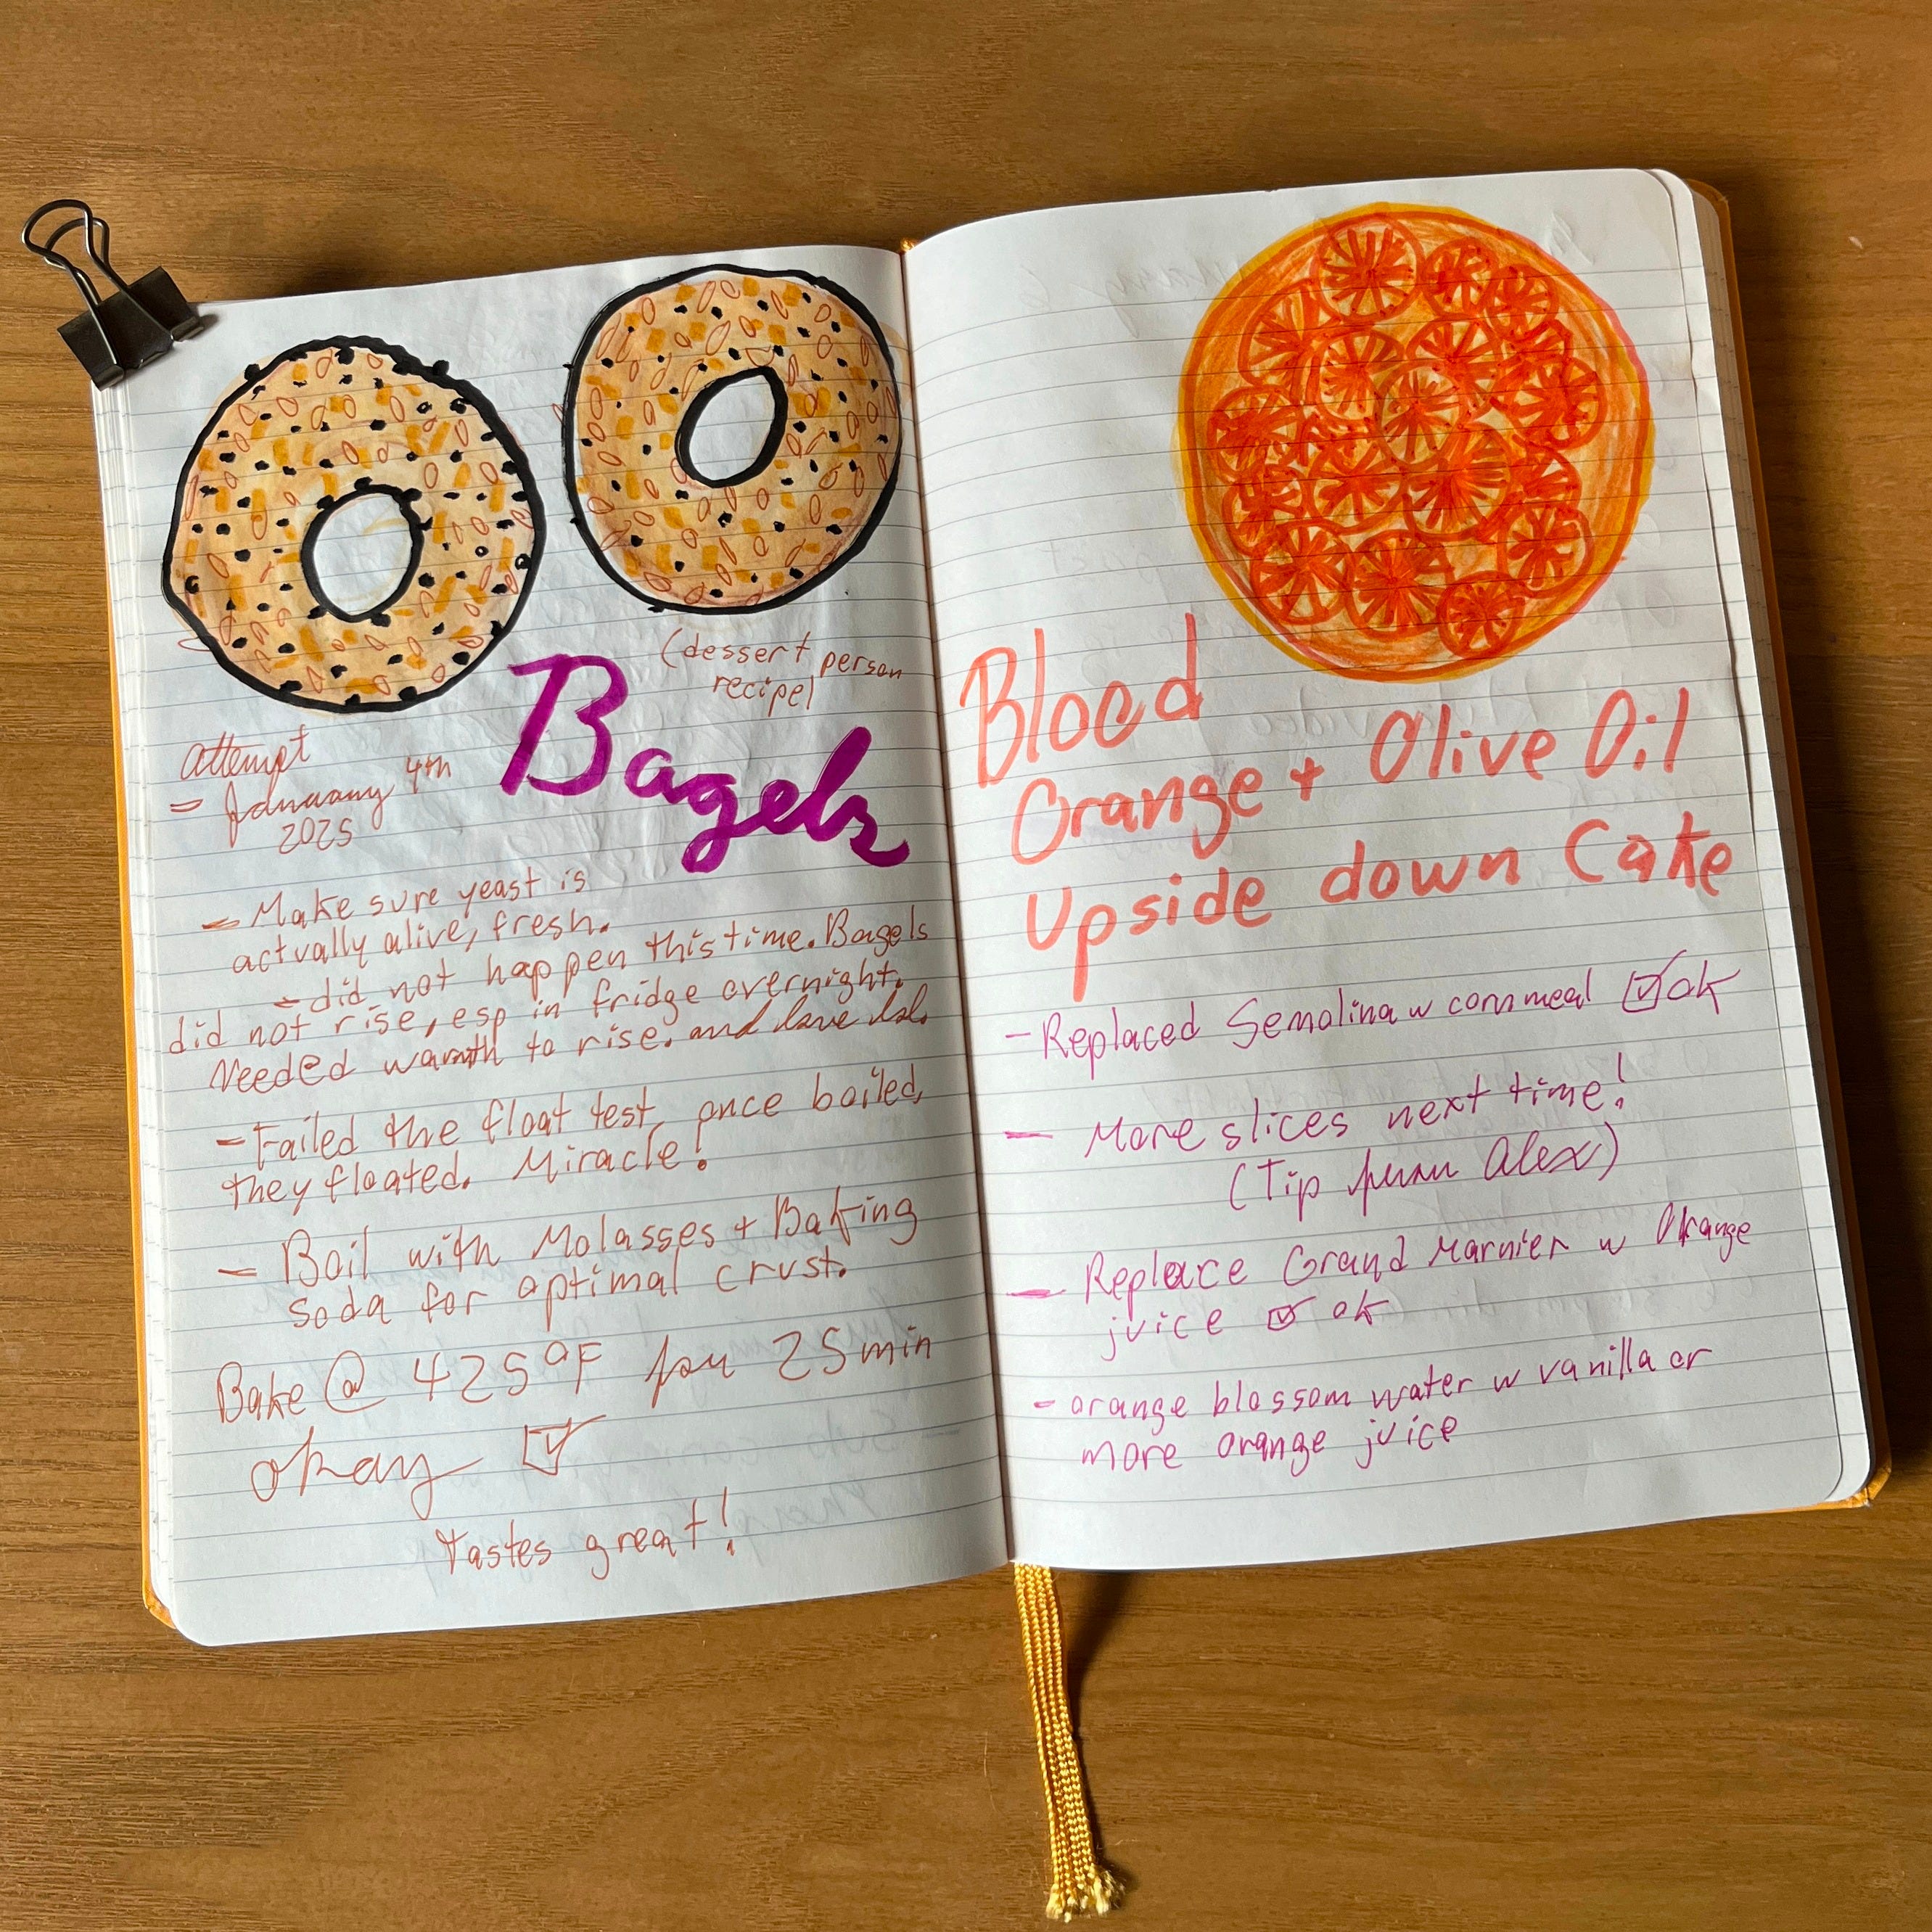 (dessert person
recipe)
Bagels
attempt
- January 4th
2025
- Make sure yeast is
actually alive, fresh.
- did not happen this time. Bagels
did not rise, esp in fridge overnight.
Needed warmth to rise. and love lol.
- Failed the float test, once boiled,
they floated. Miracle!
- Boil with Molasses + Baking
soda for optimal crust.
Bake @ 425°F for 25 min
okay ☑
tastes great!
Blood
Orange + Olive Oil
Upside down Cake
- Replaced Semolina w cornmeal ☑ ok
- More slices next time!
(Tip from Alex)
- Replace Grand Marnier w Orange
juice ☑ ok
- orange blossom water w vanilla or
more orange juice